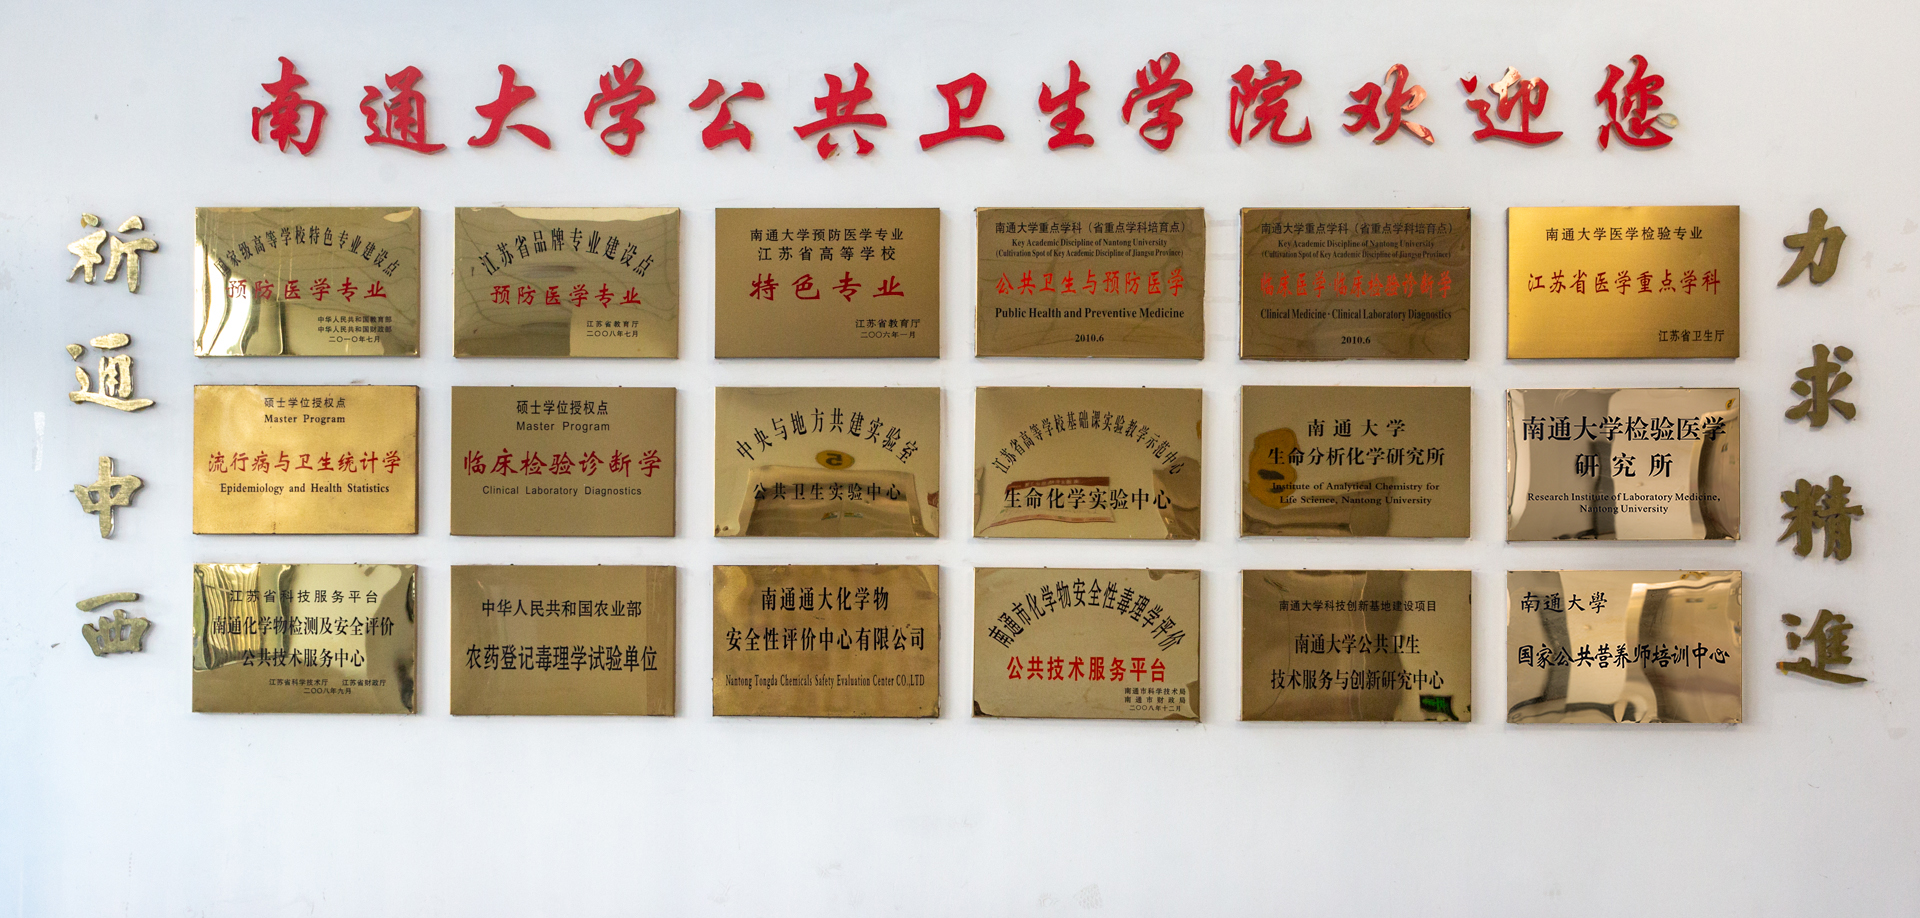 南通大学公共卫生学院欢迎您
祈通中西
国家级高等学校特色专业建设点
预防医学专业
中华人民共和国教育部
中华人民共和国财政部
二〇一〇年七月
江苏省品牌专业建设点
预防医学专业
江苏省教育厅
二〇〇八年七月
南通大学预防医学专业
江苏省高等学校
特色专业
江苏省教育厅
二〇〇六年一月
南通大学重点学科（省重点学科培育点）
Key Academic Discipline of Nantong University
(Cultivation Spot of Key Academic Discipline of Jiangsu Province)
公共卫生与预防医学
Public Health and Preventive Medicine
2010.6
南通大学重点学科（省重点学科培育点）
Key Academic Discipline of Nantong University
(Cultivation Spot of Key Academic Discipline of Jiangsu Province)
临床医学·临床检验诊断学
Clinical Medicine·Clinical Laboratory Diagnostics
2010.6
南通大学医学检验专业
江苏省医学重点学科
江苏省卫生厅
硕士学位授权点
Master Program
流行病与卫生统计学
Epidemiology and Health Statistics
硕士学位授权点
Master Program
临床检验诊断学
Clinical Laboratory Diagnostics
中央与地方共建实验室
公共卫生实验中心
江苏省高等学校基础课实验教学示范中心
生命化学实验中心
南通大学
生命分析化学研究所
Institute of Analytical Chemistry for
Life Science, Nantong University
南通大学检验医学
研究所
Research Institute of Laboratory Medicine,
Nantong University
江苏省科技服务平台
南通化学物检测及安全评价
公共技术服务中心
江苏省科学技术厅 江苏省财政厅
二〇〇八年九月
中华人民共和国农业部
农药登记毒理学试验单位
南通通大化学物
安全性评价中心有限公司
Nantong Tongda Chemicals Safety Evaluation Center CO.,LTD
南通市化学物安全性毒理学评价
公共技术服务平台
南通市科学技术局
南通市财政局
二〇〇八年十二月
南通大学科技创新基地建设项目
南通大学公共卫生
技术服务与创新研究中心
南通大學
国家公共营养师培训中心
力求精進